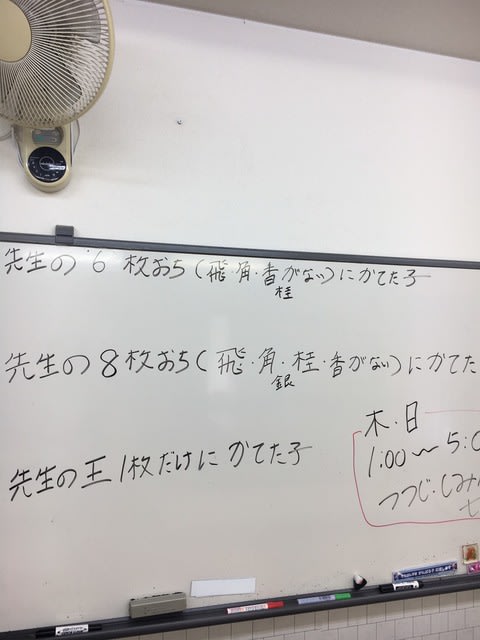 先生の 6 枚おち(飛・角・香がない)にかてた子
桂
先生の 8 枚おち(飛・角・桂・香がない)にかてた
銀
先生の王 1枚だけに かてた子
木・日
1:00〜5:0
つつじ・しみん
セ